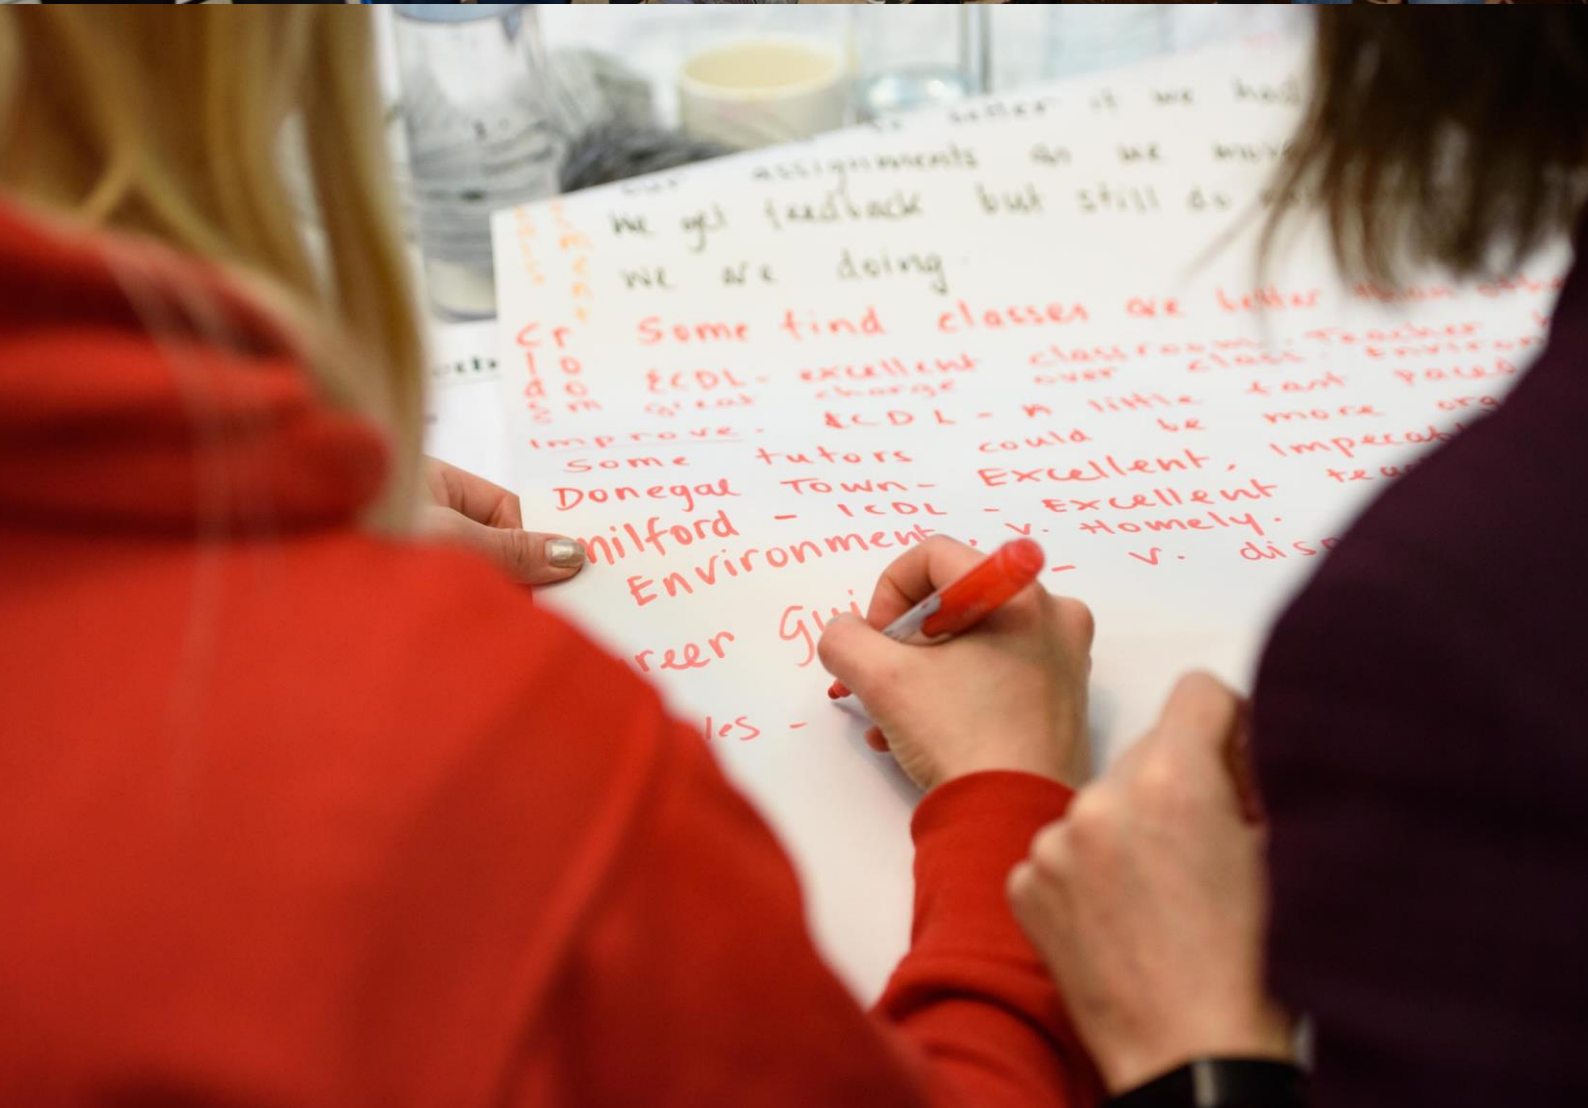 better if we had
our assignments as we move
we get feedback but still do
we are doing.
Some find classes are better than other
ECDL - excellent classroom. Teacher
great charge over class. Environ
Improve. ECDL - A little fast paced
Some tutors could be more org
Donegal Town - Excellent, Impecab
milford - ICDL - Excellent tea
Environment, v. Homely.
- v. disp
reer Gui
les -